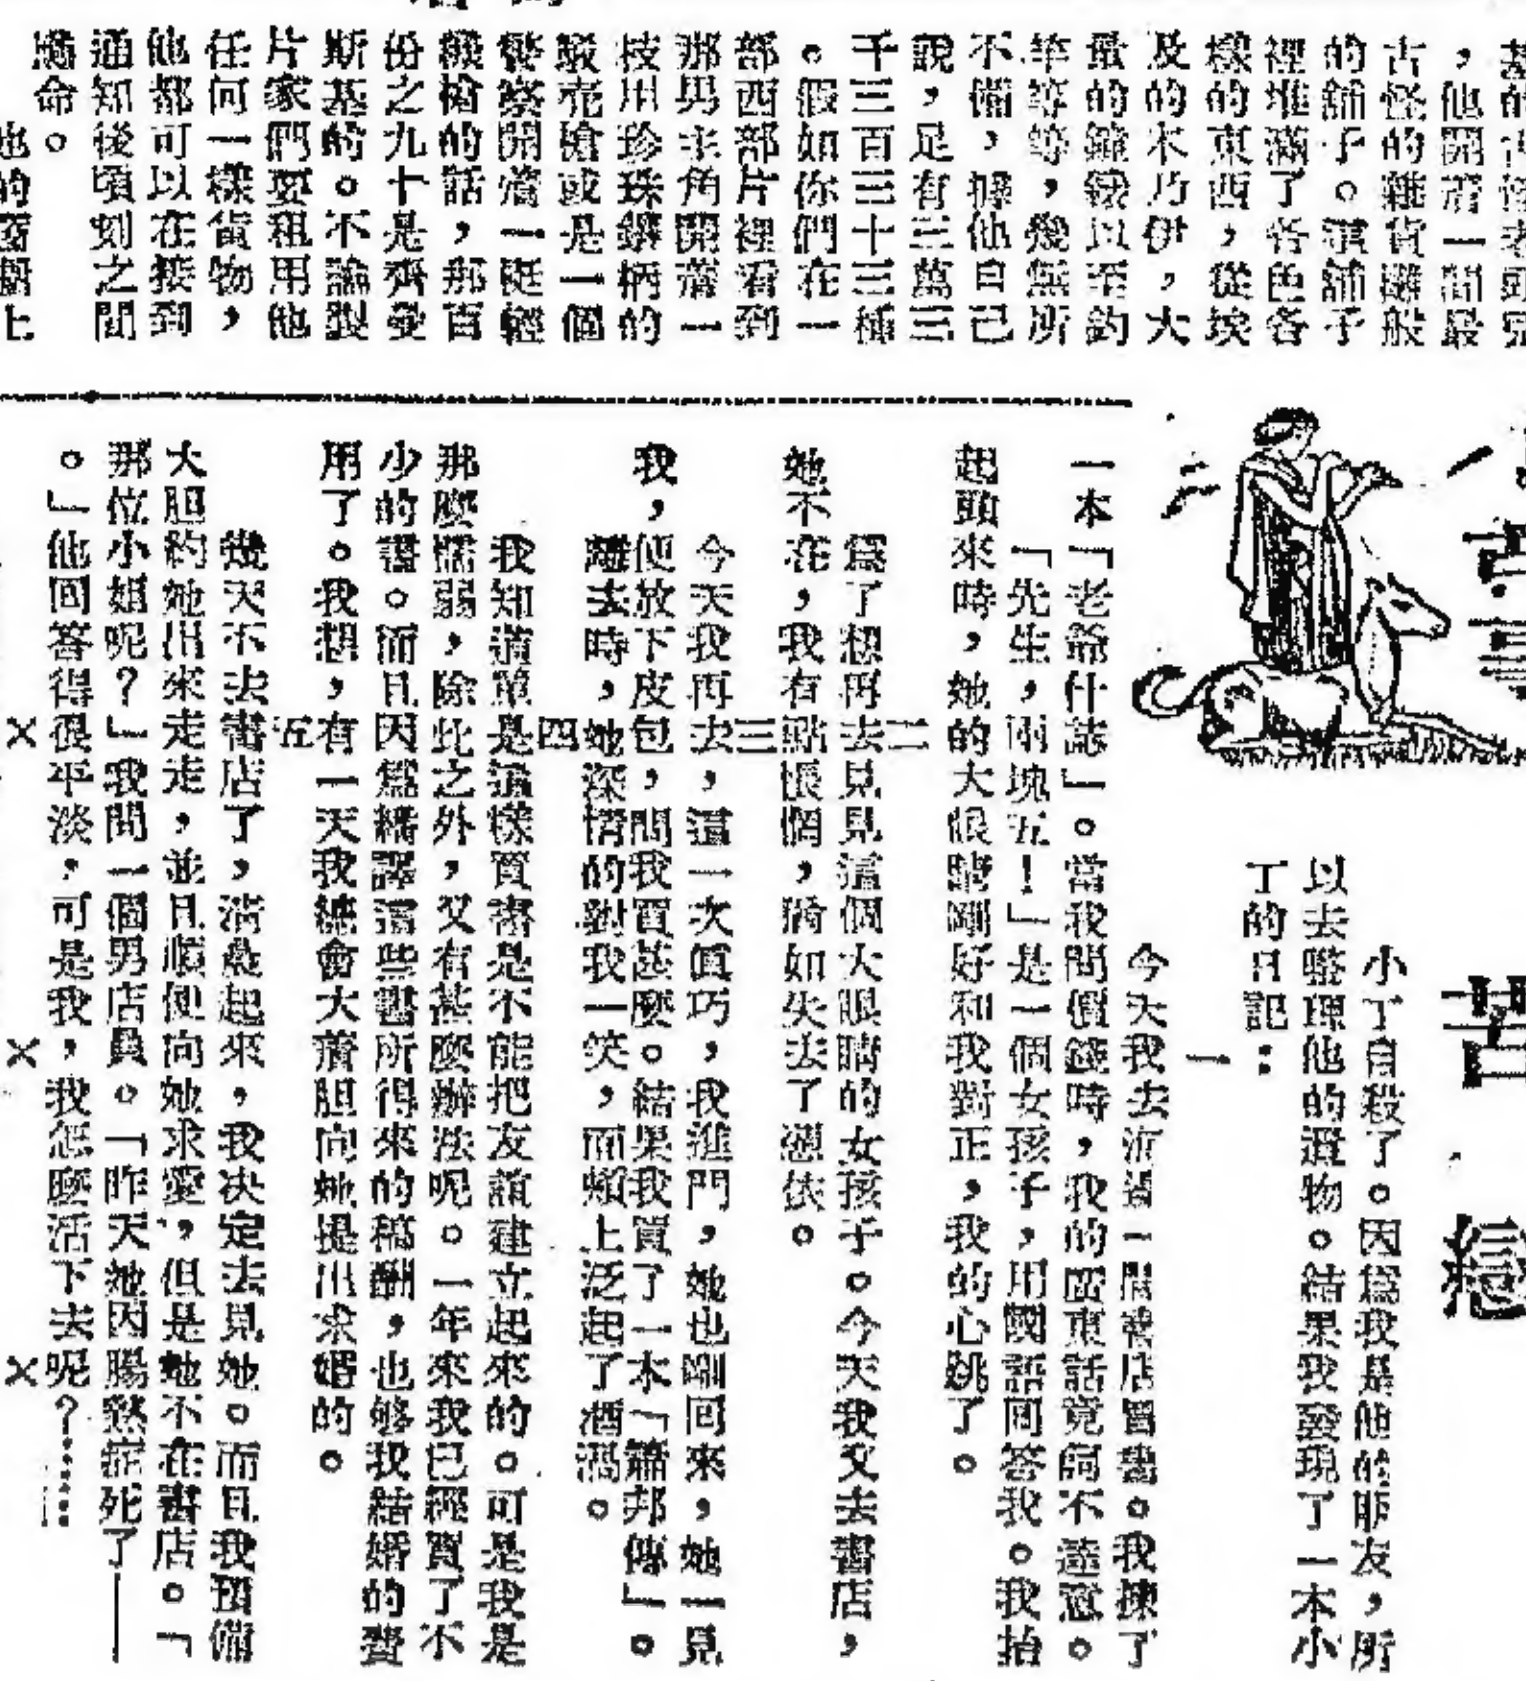 ，他開着一間最
古怪的雜貨雜般
的舖子。這舖子
裡堆滿了各色各
樣的東西，從埃
及的木乃伊，大
量的鐘錶以至釣
竿等等，幾無所
不備，據他自己
說，足有三萬三
千三百三十三種
。假如你們在一
部西部片裡看到
那男主角開着一
枝用珍珠鑲柄的
駁壳槍或是一個
警察開着一挺輕
機槍的話，那百
份之九十是齊曼
斯基的。不論製
片家們要租用他
任何一樣貨物，
他都可以在接到
通知後頃刻之間
遵命。
小丁自殺了。因爲我是他的朋友，所
以去整理他的遺物。結果我發現了一本小
丁的日記：
一
今天我去逛過一間書店買書。我揀了
一本「老爺什誌」。當我問價錢時，我的廣東話竟詞不達意。
「先生，兩塊五！」是一個女孩子，用國語回答我。我抬
起頭來時，她的大眼睛剛好和我對正，我的心跳了。
二
爲了想再去見見這個大眼睛的女孩子。今天我又去書店，
她不在，我有點悵惘，猶如失去了憑依。
三
今天我再去，這一次真巧，我進門，她也剛回來，她一見
我，便放下皮包，問我買甚麼。結果我買了一本「蕭邦傳」。
離去時，她深情的對我一笑，而頰上泛起了酒渦。
四
我知道單是這樣買書是不能把友誼建立起來的。可是我是
那麼懦弱，除此之外，又有甚麼辦法呢。一年來我已經買了不
少的書。而且因爲繙譯這些書所得來的稿酬，也够我結婚的費
用了。我想，有一天我總會大着胆向她提出求婚的。
五
幾天不去書店了，清晨起來，我決定去見她。而且我預備
大胆約她出來走走，並且順便向她求愛，但是她不在書店。「
那位小姐呢？」我問一個男店員。「昨天她因腸熱症死了——
。」他回答得很平淡，可是我，我怎麼活下去呢？……
×　×　×